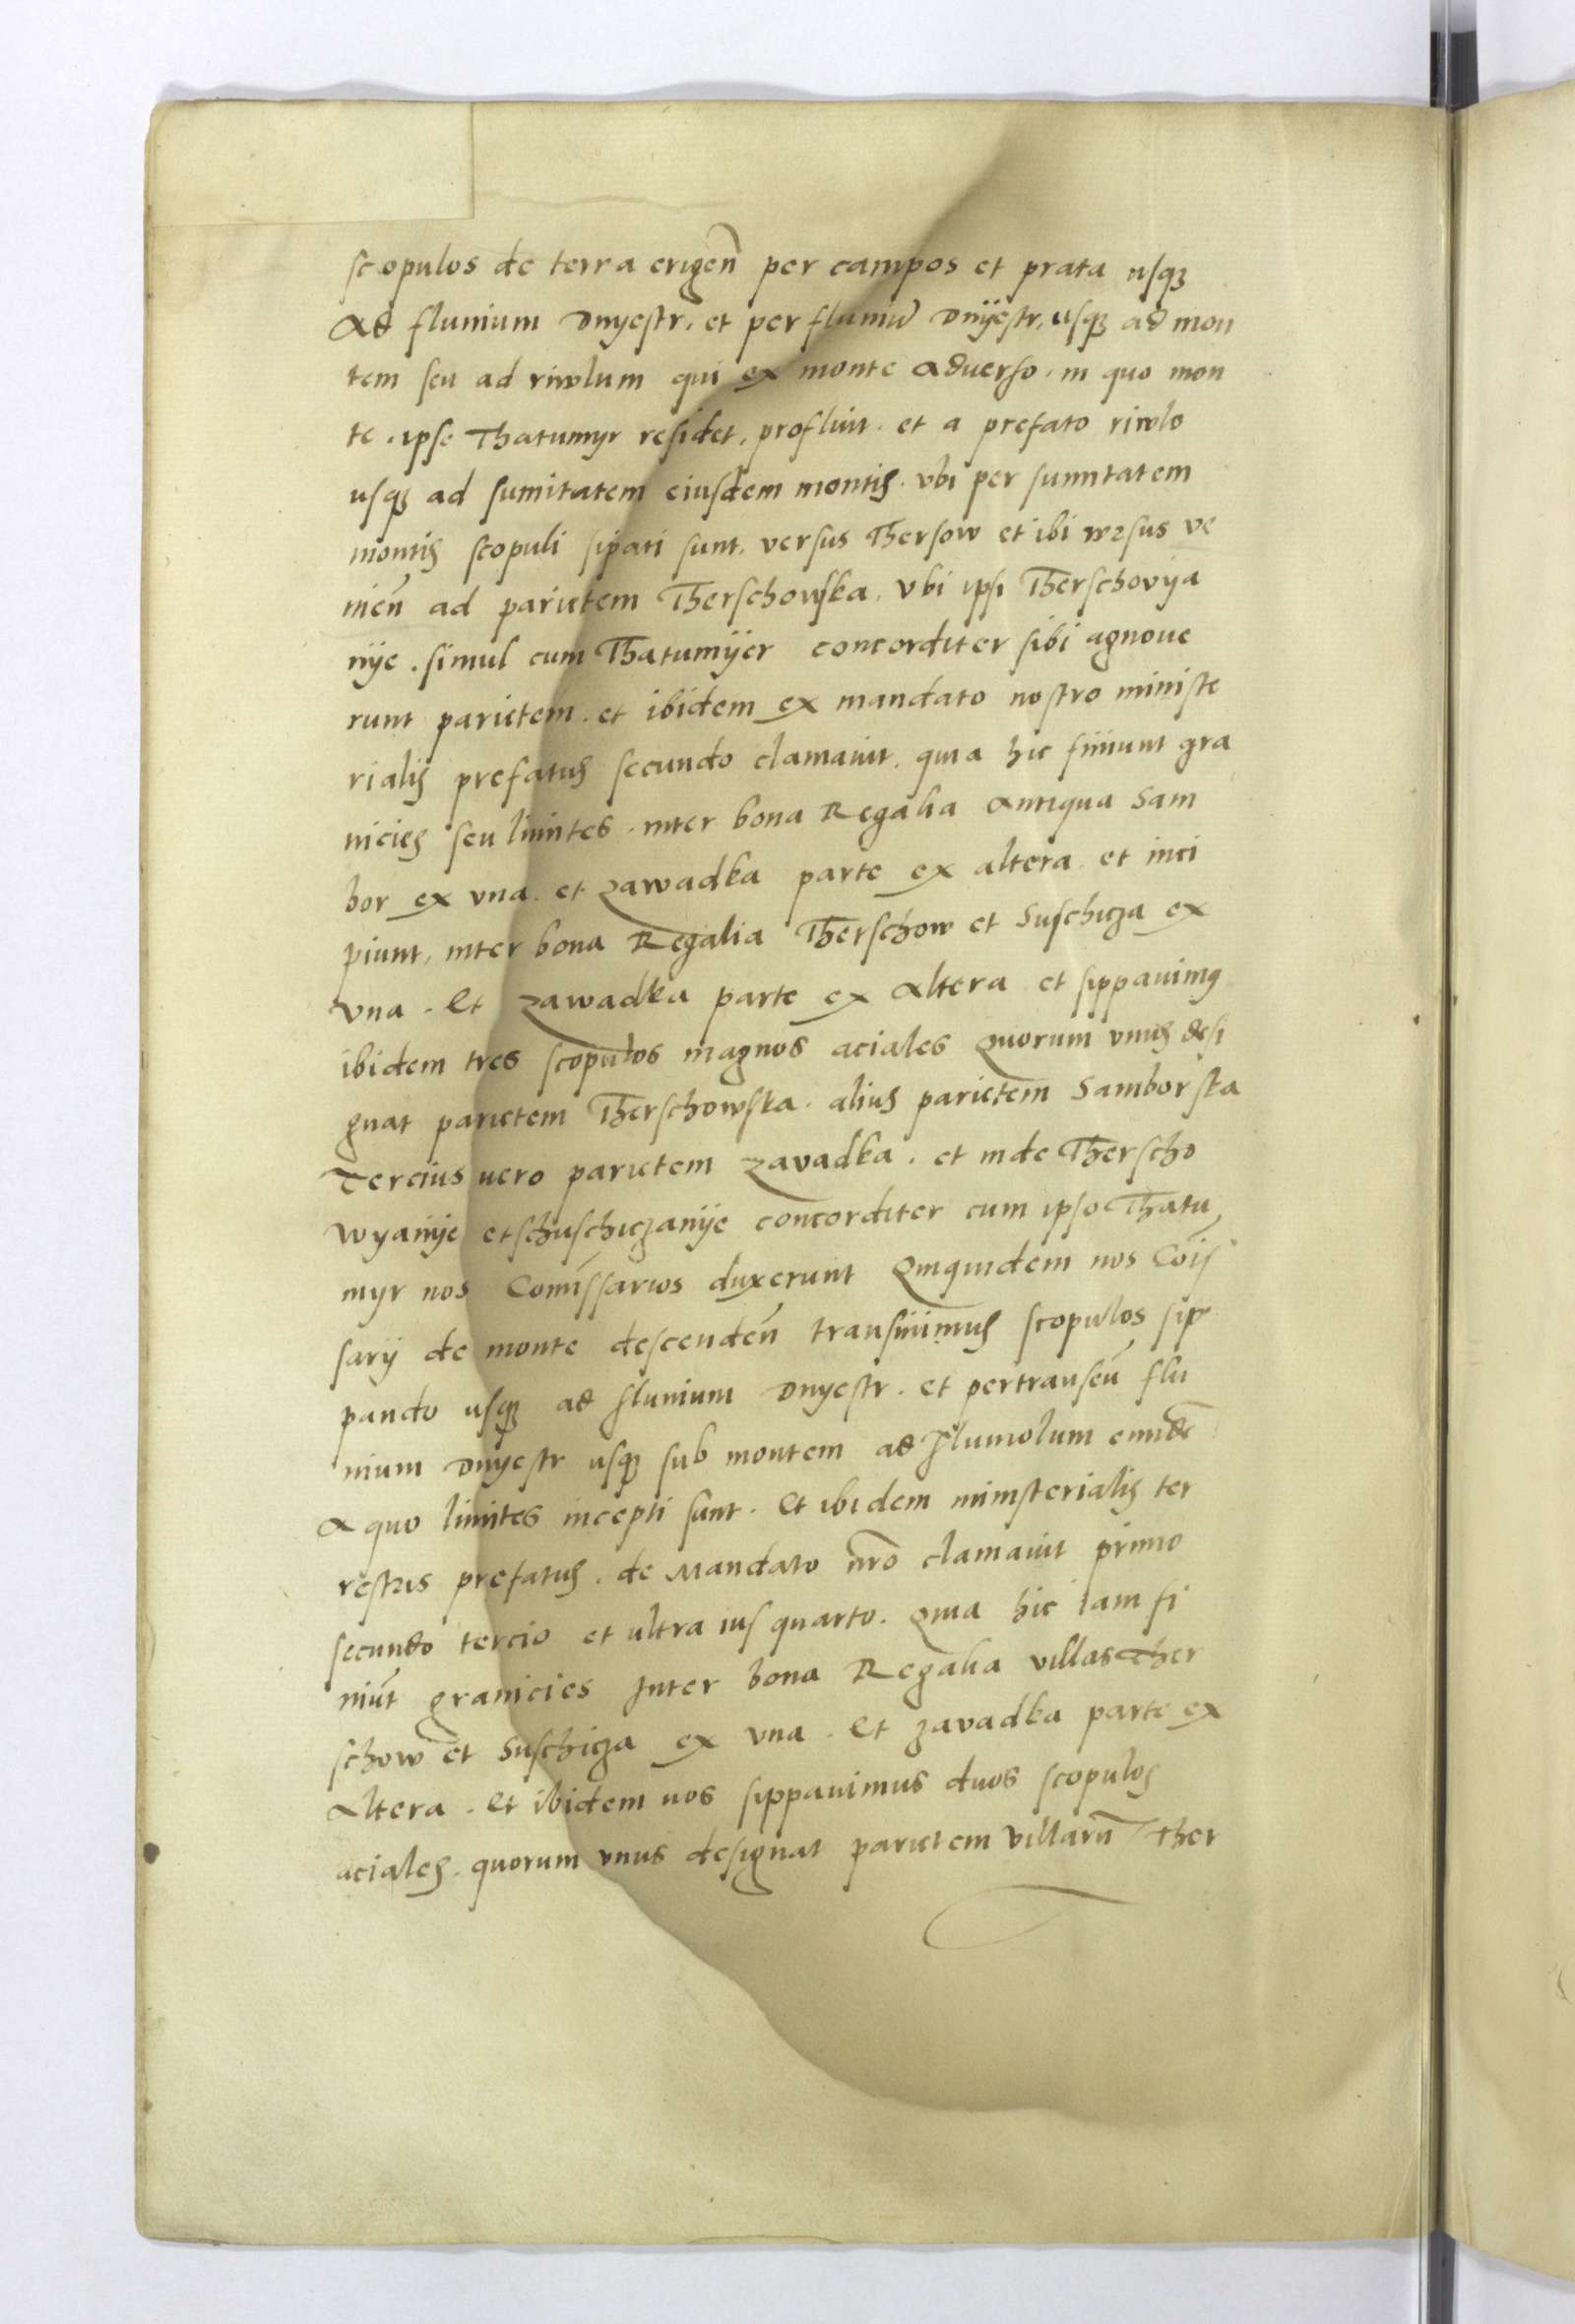 scopulos de terra erigen̄ per campos et prata usqȝ
Ad fluuium Dnyestr, et per fluuiū Dnÿestr, usqȝ ad mon
tem seu ad riwlum qui ex monte aduerso, in quo mon
te, ipse Thatumyr residet, profluit. et a prefato riwlo
usqȝ ad sumitatem eiusdem montis. vbi per sumitatem
montis scopuli sipati sunt, versus Thersow et ibi rursus ve
nien̄ ad parietem Therschowska, vbi ipsi Therschovÿa
nÿe. simul cum Thatumÿer concorditer sibi agnoue
runt parietem. et ibidem ex mandato nostro ministe
rialis prefatus secundo clamauit. quia hic finiunt gra
nicies seu limites. inter bona Regalia Antiqua Sam
bor ex vna. et Zawadka parte ex altera. et inci
piunt, inter bona Regalia Therschow et Suschicza ex
vna. Et Zawadka parte ex Altera et sippauimꝰ
ibidem tres scopulos magnos aciales Quorum vnus desi
gnat parietem Therschowska. alius parietem Samborska
Tercius uero parietem Zavadka. et inde Therscho
wyanÿe et Schuschiczanÿe concorditer cum ipso Thatu
myr nos Comissarios duxerunt Quiquidem nos Cōis
sarÿ de monte descenden̄ transiuimus scopulos sip
pando usqȝ ad fluuium Dnyestr. et pertranseun̄ flu
uium Dnyestr usqȝ sub montem ad fluuiolum eundē
A quo limites incepti sunt. Et ibidem ministerialis ter
restris prefatus. de Mandato nr̄o clamauit primo
secundo tercio et ultra ius quarto. Quia hic iam fi
niūt granicies Inter bona Regalia villas Ther
schow et Suschicza ex vna. Et Zavadka parte ex
Altera. Et ibidem nos sippauimus duos scopulos
aciales. quorum vnus designat parietem villarū Ther